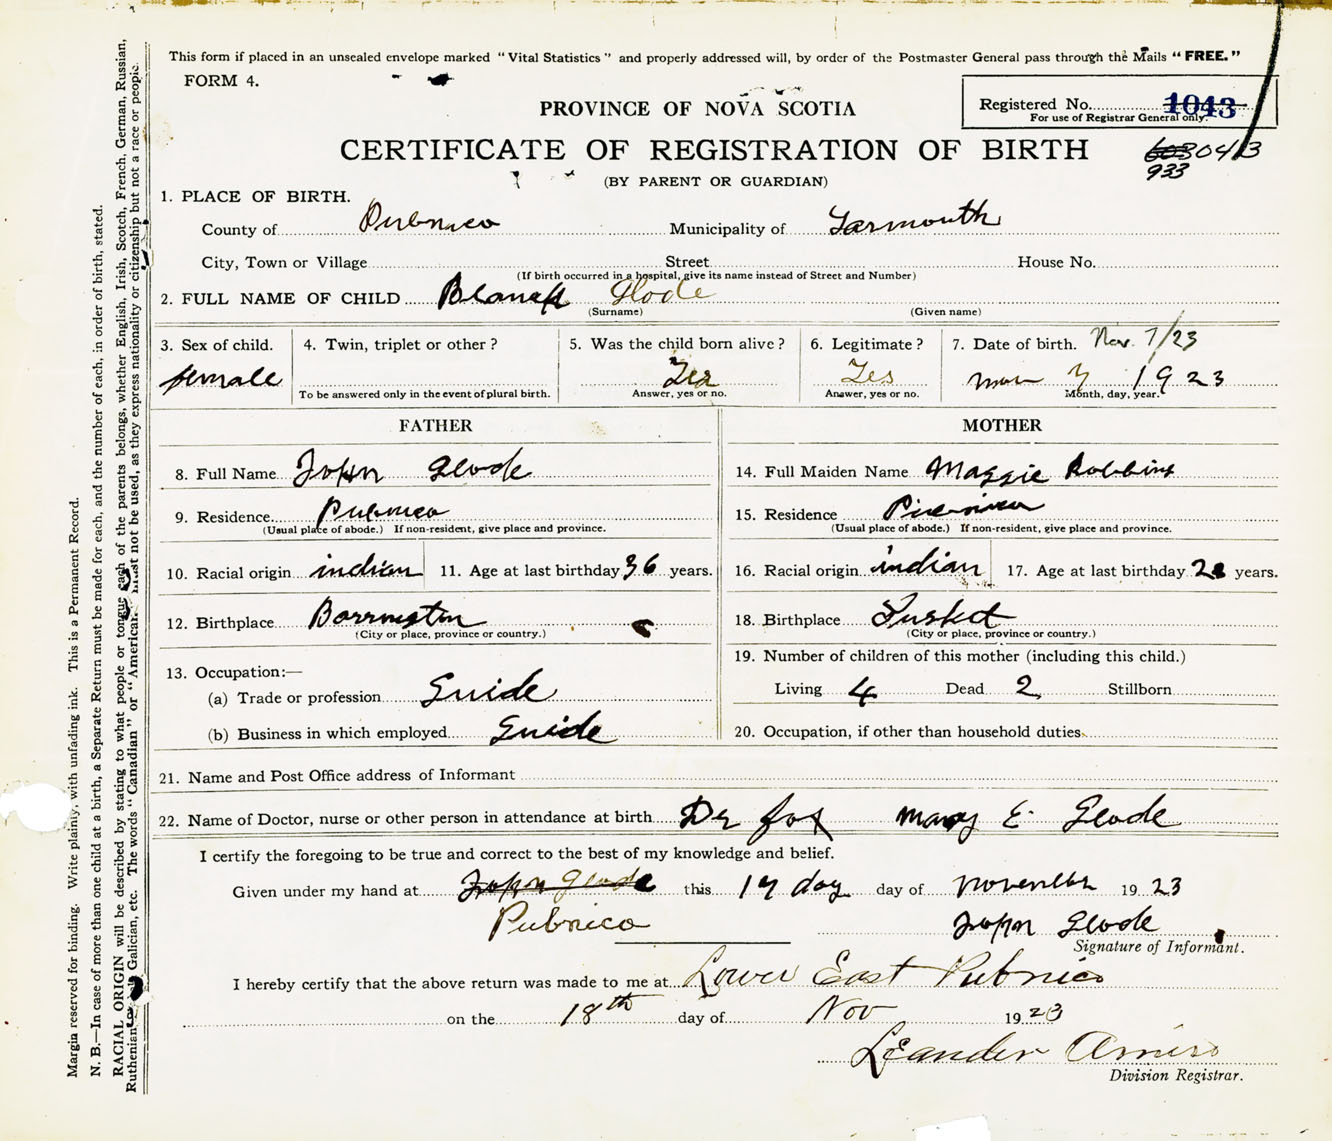 This form if placed in an unsealed envelope marked "Vital Statistics" and properly addressed will, by order of the Postmaster General pass through the Mails "FREE."
FORM 4.
PROVINCE OF NOVA SCOTIA
Registered No. 1043
For use of Registrar General only.
CERTIFICATE OF REGISTRATION OF BIRTH
933
(BY PARENT OR GUARDIAN)
1. PLACE OF BIRTH.
County of Pubnico Municipality of Yarmouth
City, Town or Village Street House No.
(If birth occurred in a hospital, give its name instead of Street and Number)
2. FULL NAME OF CHILD Blanch Glode
(Surname) (Given name)
3. Sex of child. 4. Twin, triplet or other? 5. Was the child born alive? 6. Legitimate? 7. Date of birth. Nov. 7/23
female Yes Yes 7 1923
To be answered only in the event of plural birth. Answer, yes or no. Answer, yes or no. Month, day, year.
FATHER MOTHER
8. Full Name John Glode 14. Full Maiden Name Maggie Robbins
9. Residence Pubnico 15. Residence
(Usual place of abode.) If non-resident, give place and province. (Usual place of abode.) If non-resident, give place and province.
10. Racial origin indian 11. Age at last birthday 36 years. 16. Racial origin indian 17. Age at last birthday years.
12. Birthplace Barrington 18. Birthplace Tusket
(City or place, province or country.) (City or place, province or country.)
13. Occupation:— 19. Number of children of this mother (including this child.)
(a) Trade or profession Guide Living 4 Dead 2 Stillborn
(b) Business in which employed Guide 20. Occupation, if other than household duties
21. Name and Post Office address of Informant
22. Name of Doctor, nurse or other person in attendance at birth Dr fox Mary E. Glode
I certify the foregoing to be true and correct to the best of my knowledge and belief.
Given under my hand at John Glode this 17 day day of November 1923
Pubnico John Glode
Signature of Informant.
I hereby certify that the above return was made to me at Lower East Pubnico
on the 18th day of Nov 1923
Leander Amiro
Division Registrar.
Margin reserved for binding. Write plainly, with unfading ink. This is a Permanent Record.
N. B.—In case of more than one child at a birth, a Separate Return must be made for each, and the number of each, in order of birth, stated.
RACIAL ORIGIN will be described by stating to what people or tongue each of the parents belongs, whether English, Irish, Scotch, French, German, Russian,
Ruthenian, Galician, etc. The words "Canadian" or "American" must not be used, as they express nationality or citizenship but not a race or people.